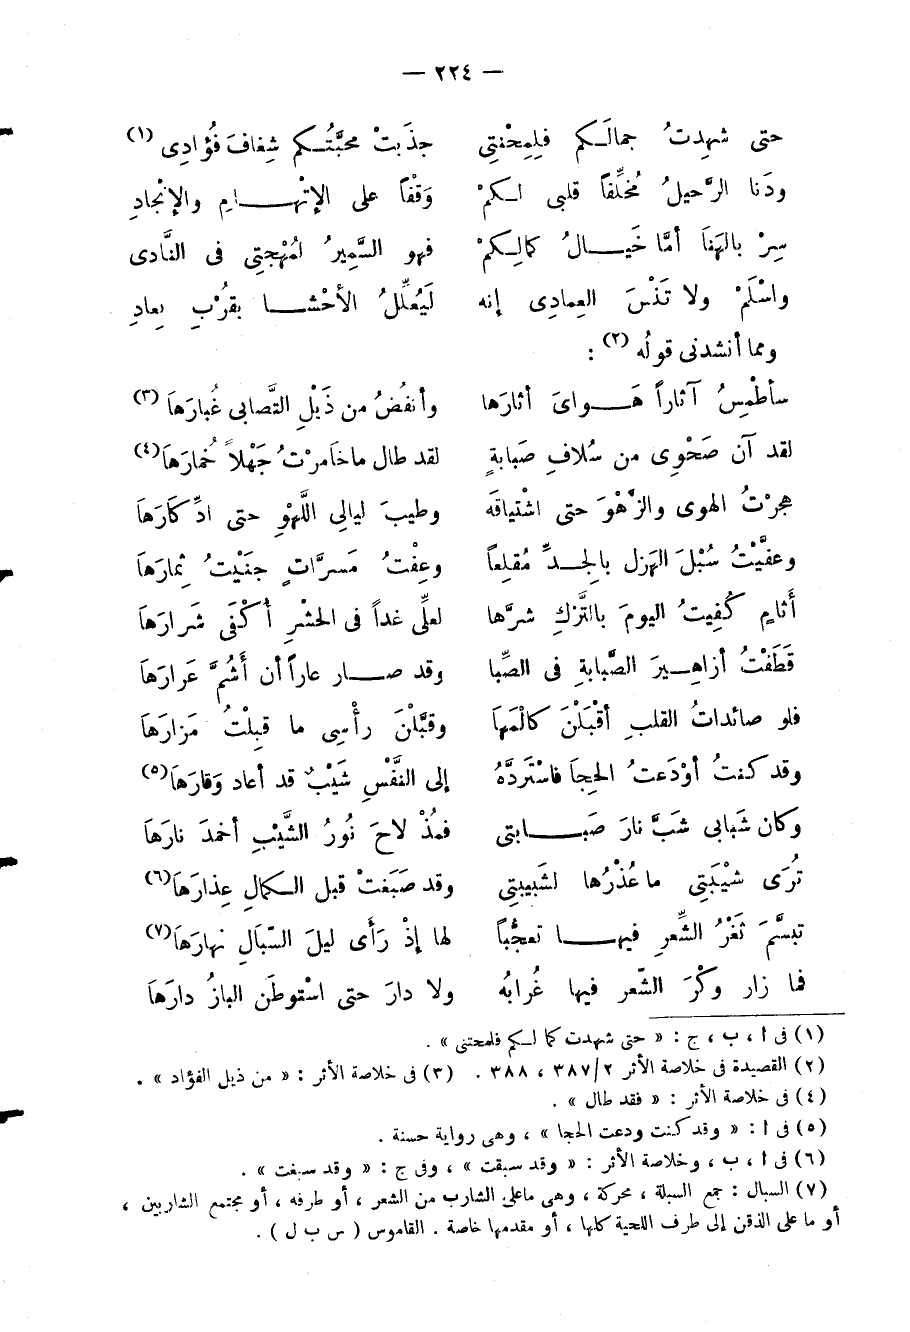 — ٢٢٤ —
حتى شهِدتُ جمالَـكم فلِمِحْنتِى جذَبتْ محبَّتُـكم شِغافَ فُؤادِى (١)
ودَنا الرَّحيلُ مُخلِّفاً قلبى لـكمْ وَقْفاً على الإتْهـامِ والإنْجادِ
سِرْ بالهَنَا أمَّا خَيـالُ كمالِـكمْ فهو السَّمِيرُ لمُهْجتِى فى النَّادى
واسْلَمْ ولا تَنْسَ العِمادِى إنه لَيُعلِّلُ الأحْشـا بقُرْبِ بِعادِ
ومما أنشدنى قولُه (٢) :
سأطْمِسُ آثاراً هَـواىَ أثارَها وأنفُضُ من ذَيْلِ التَّصابى غُبارَهاَ (٣)
لقد آن صَحْوِى من سُلافِ صَبابةٍ لقد طال ماخاَمرْتُ جَهْلاً خُمارَهاَ (٤)
هجرْتُ الهوى والزَّهْوَ حتى اشْتياقَه وطيبَ ليالِى اللَّهْوِ حتى ادِّكارَهاَ
وعفَّيْتُ سُبْلَ الهَزل بالجـدِّ مُقلِعاً وعِفْتُ مَسرَّاتٍ جنَيْتُ ثِمارَهاَ
أَثام كُفِيتُ اليومَ بالتَّركِ شرَّها لعلِّى غداً فى الحشْرِ أُكْفَى شَرارَهاَ
قَطَفْتُ أزاهـيرَ الصَّبابةِ فى الصِّبا وقد صـار عاراً أن أَشُمَّ عَرارَهاَ
فلو صائداتُ القلبِ أقْبَلْنَ كالْمَهاَ وقبَّلْنَ رأْسِى ما قبِلْتُ مَزارَهاَ
وقد كنتُ أوْدَعتُ الحِجاَ فاسْتَردَّهُ إلى النَّفْسِ شَيْبٌ قد أعاد وَقارَهاَ (٥)
وكان شَبابى شَبَّ نارَ صَبـابتِى فمُذْ لاحَ نُورُ الشَّيْبِ أخمدَ نارَهاَ
تُرَى شيْبَتِى ما عُذْرُها لشَبِيبتِى وقد صَبَغتْ قبل الـكمالِ عِذارَهاَ (٦)
تبسَّمَ ثَغْرُ الشَّعرِ فيهـا تعجُّباً لها إذْ رَأَى ليلَ السّبَالِ نهارَهاَ (٧)
فما زار وكْرَ الشّعر فيها غُرابُه ولا دارَ حتى استْوطَن البازُ دارَهاَ
(١) فى ا ، ب ، ج : « حتى شهدت كما لـكم فلمحنتى » .
(٢) القصيدة فى خلاصة الأثر ٢/٣٨٧ ، ٣٨٨ . (٣) فى خلاصة الأثر : « من ذيل الفؤاد » .
(٤) فى خلاصة الأثر : « فقد طال » .
(٥) فى ا : « وقد كنت ودعت الحجا » ، وهى رواية حسنة .
(٦) فى ا ، ب ، وخلاصة الأثر : « وقد سبقت » ، وفى ج : « وقد سبغت » .
(٧) السبال : جمع السبلة ، محركة ، وهى ماعلى الشارب من الشعر ، أو طرفه ، أو مجتمع الشاربين ،
أو ما على الذقن إلى طرف اللحية كلها ، أو مقدمها خاصة . القاموس ( س ب ل ) .